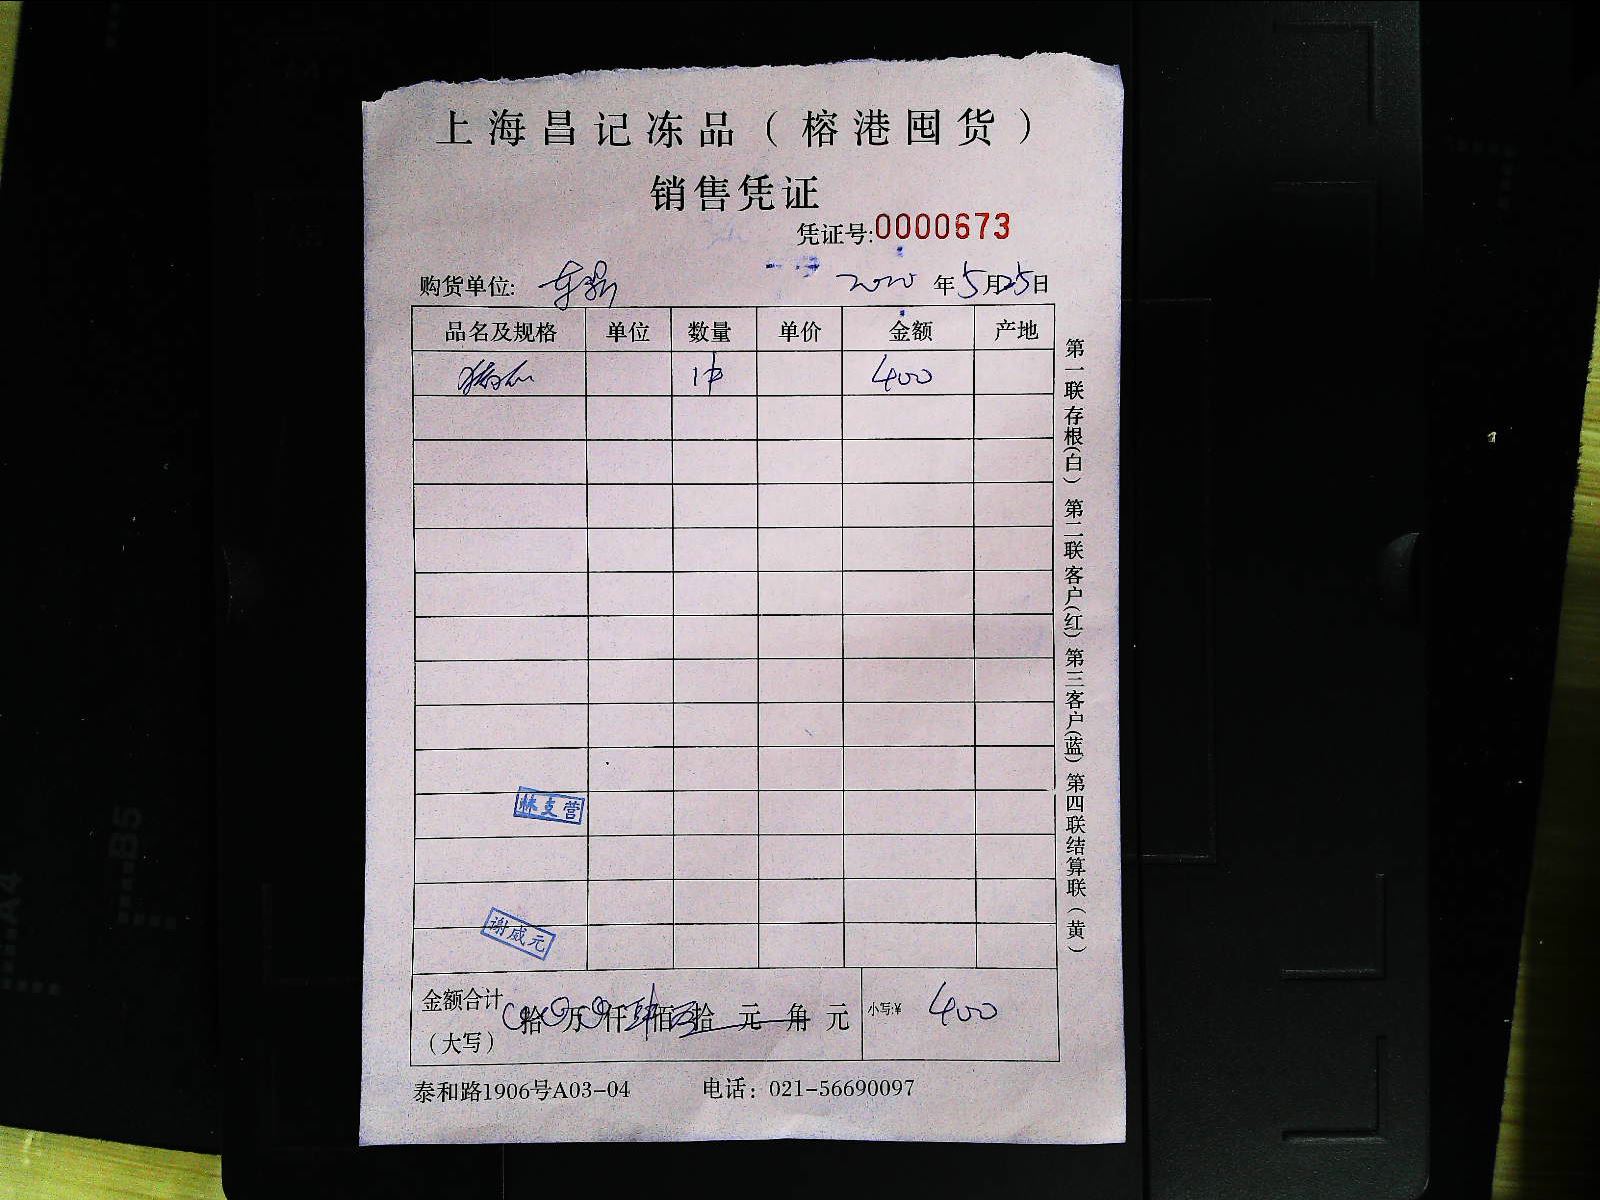 上海昌记冻品(榕港囤货)
销售凭证
凭证号:0000673
购货单位: 2020年5月25日
品名及规格 单位 数量 单价 金额 产地
1件 400
林支营
谢威元
金额合计(大写) 拾 万 仟肆佰 拾 元 角 元 小写:¥ 400
泰和路1906号A03-04 电话：021-56690097
第一联存根(白) 第二联客户(红) 第三客户(蓝) 第四联结算联(黄)
A4
B5